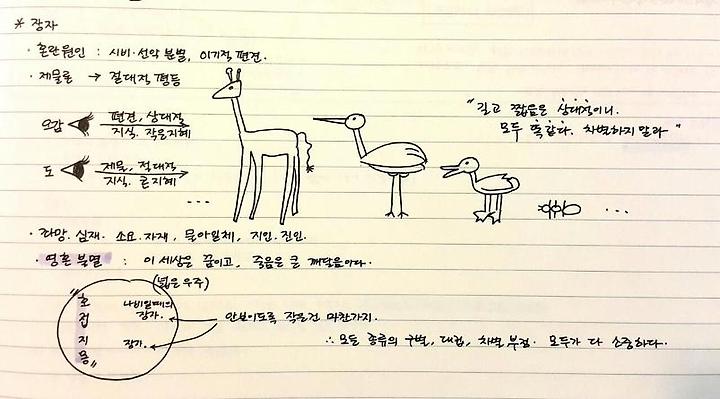 * 장자
· 혼란원인 : 시비·선악 분별, 이기적 편견.
· 제물론 → 절대적 평등
오감 편견, 상대적
지식. 작은지혜
"길고 짧음은 상대적이니.
모두 똑같다. 차별하지 말라"
도 제물, 절대적
지식. 큰지혜
...
...
· 좌망. 심재. 소요. 자재, 물아일체, 지인. 진인.
· 영혼 불멸 : 이 세상은 꿈이고, 죽음은 큰 깨달음이다.
(넓은 우주)
"호접지몽"
나비일때의
장자.
장자.
안보이도록 작은건 마찬가지.
∴ 모든 종류의 구별, 대립, 차별 부정. 모두가 다 소중하다.